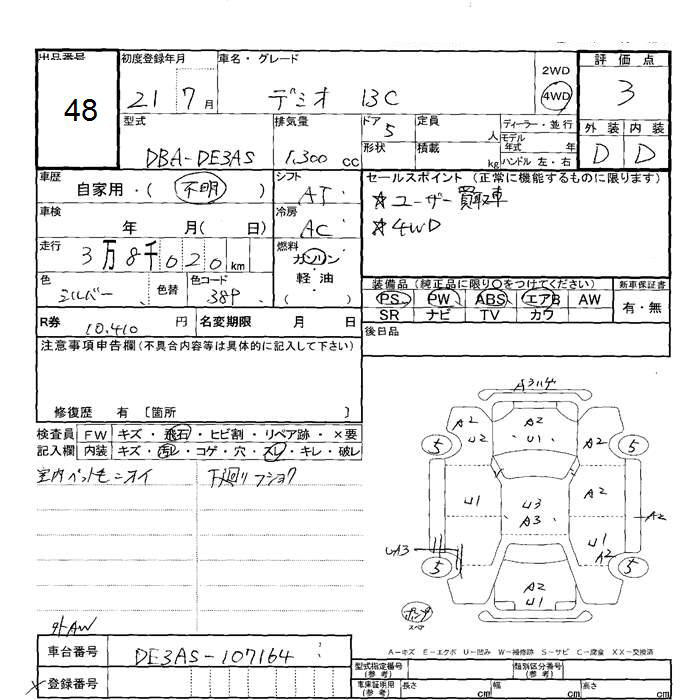 出品番号
48
初度登録年月
21 7月
車名・グレード
デミオ 13C
2WD
4WD
評価点
3
外装 内装
D D
型式
DBA-DE3AS
排気量
1,300 cc
ドア
5
形状
定員
人
積載
kg
ディーラー・並行
モデル
年式 年
ハンドル 左・右
車歴
自家用・(不明)
シフト
AT
車検
年 月( 日)
冷房
AC
走行
3万8千020km
燃料
ガソリン
軽油
( )
色
シルバー
色替
色コード
38P
R券
10,410 円
名変期限 月 日
セールスポイント (正常に機能するものに限ります)
☆ユーザー買取車
☆4WD
装備品(純正品に限り○をつけてください)
新車保証書
PS PW ABS エアB AW
SR ナビ TV カワ
有・無
後日品
注意事項申告欄(不具合内容等は具体的に記入して下さい)
修復歴 有 〔箇所 〕
検査員
記入欄
FW キズ・飛石・ヒビ割・リペア跡・×要
内装 キズ・汚レ・コゲ・穴・スレ・キレ・破レ
室内ペットモニオイ
下廻リフショク
A3ハゲ
A2 A2 A2
U2 U1
5 5
U1 U3 A2
A3 A2
U1
UA3 A2
5 5
A2
U1
パンク
スペア
A－キズ E－エクボ U－凹み W－補修跡 S－サビ C－腐食 XX－交換済
外AW
車台番号
DE3AS-107164
登録番号
型式指定番号
(参考)
類別区分番号
(参考)
車庫証明用
(参考)
長さ cm
幅 cm
高さ cm